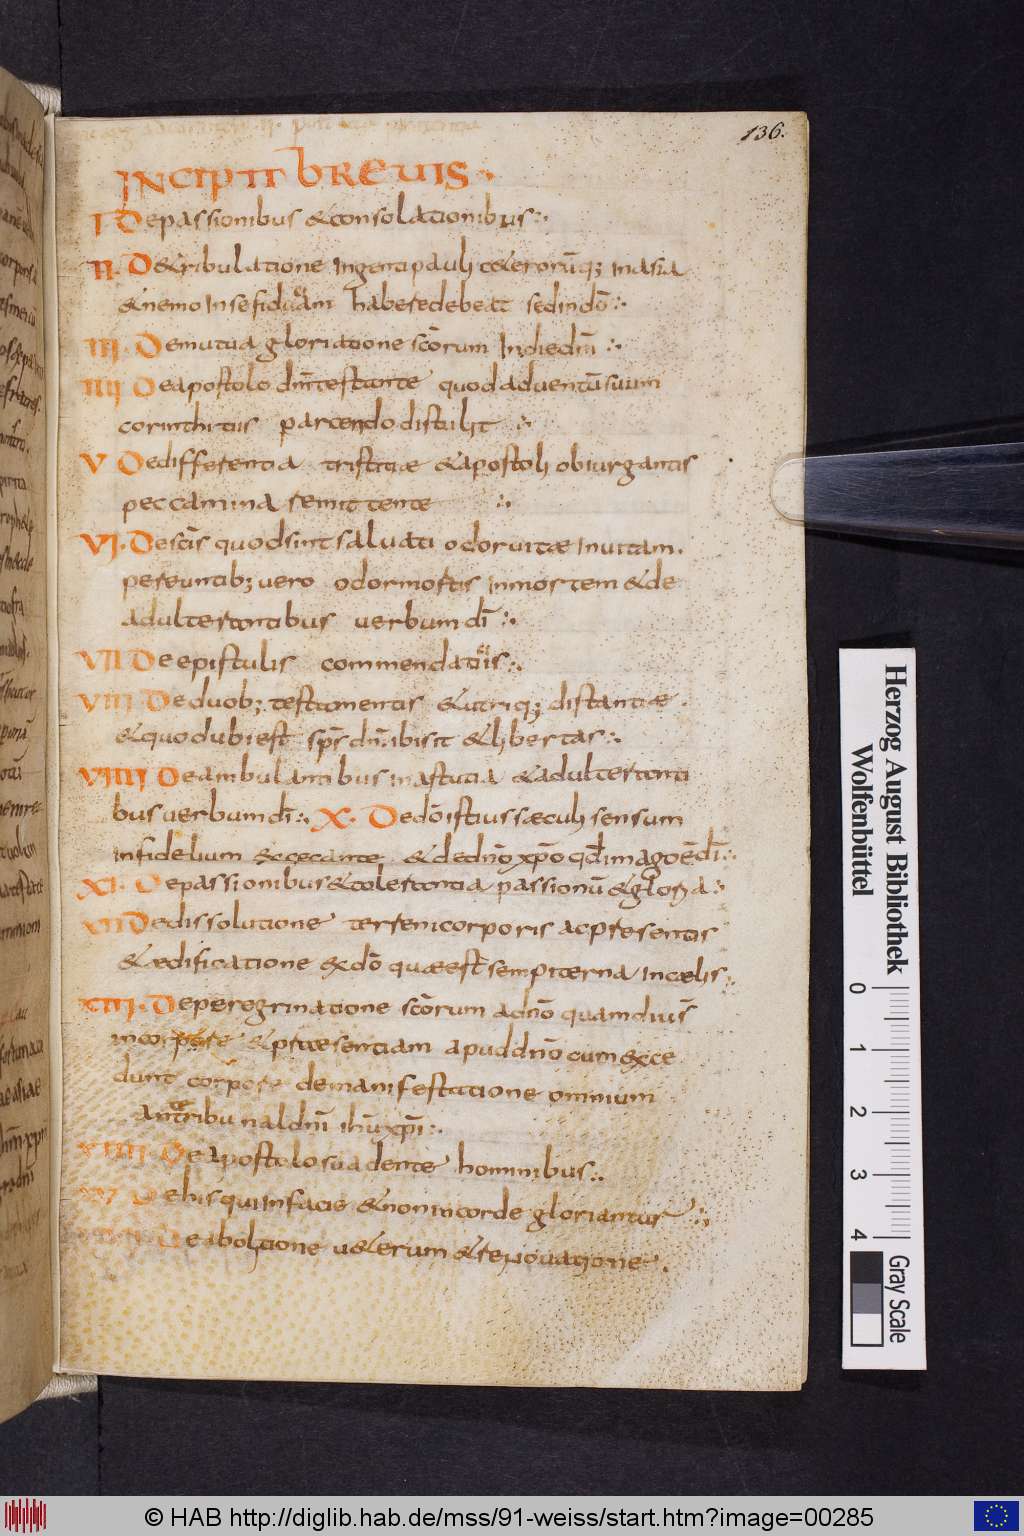 136.
INCIPIT BREUIS
I Depassionibus &consolationibus
II. D&ribulatione Ingenti pauli c&erorūq; Inasia
&nemo Insefiduam habere debeat sed in dō
III Demutua gloriatione scōrum Indiedn̄i
IIII Deapostolo dn̄mtestante quod aduentūsuum
corinthiis parcendo distulit
V Dedifferentia tristitiae &apostoli obiurgantis
peccamina remittente
VI. Descīs quodsint saluati odor uitae Inuitam.
pereuntib; uero odor mortis Inmortem &de
adulterantibus uerbum dī
VII De epistulis commendatiis
VIII Deduob; testamentis &utriq; distantiae.
&quod ubi est sps̄ dn̄i ibi sit &libertas
VIIII Deambulantibus Inastutia &adulteranti
bus uerbum dī X. Dedō istius saeculi sensum
Infidelium excecante &dedn̄o xp̄o qd̄ imago ē dī
XI. Depassionibus &tolerantia passionū &gloria
XII Dedissolutione terreni corporis ac presentis
&aedificatione exdō quae est sempiterna In caelis
XIII. Deperegrinatione scōrum adn̄o quamdiu s̄
Incorpore &praesentiam apud dn̄o cum exce
dunt corpore demanifestatione omnium
ante tribunal dn̄i ih̄u xp̄i
XIIII De Apostolo suadente hominibus
XV Dehis qui Infacie &non In corde gloriantur
De abolitione u&erum &renouatione.
Herzog August Bibliothek
Wolfenbüttel
0 1 2 3 4
Gray Scale
© HAB http://diglib.hab.de/mss/91-weiss/start.htm?image=00285